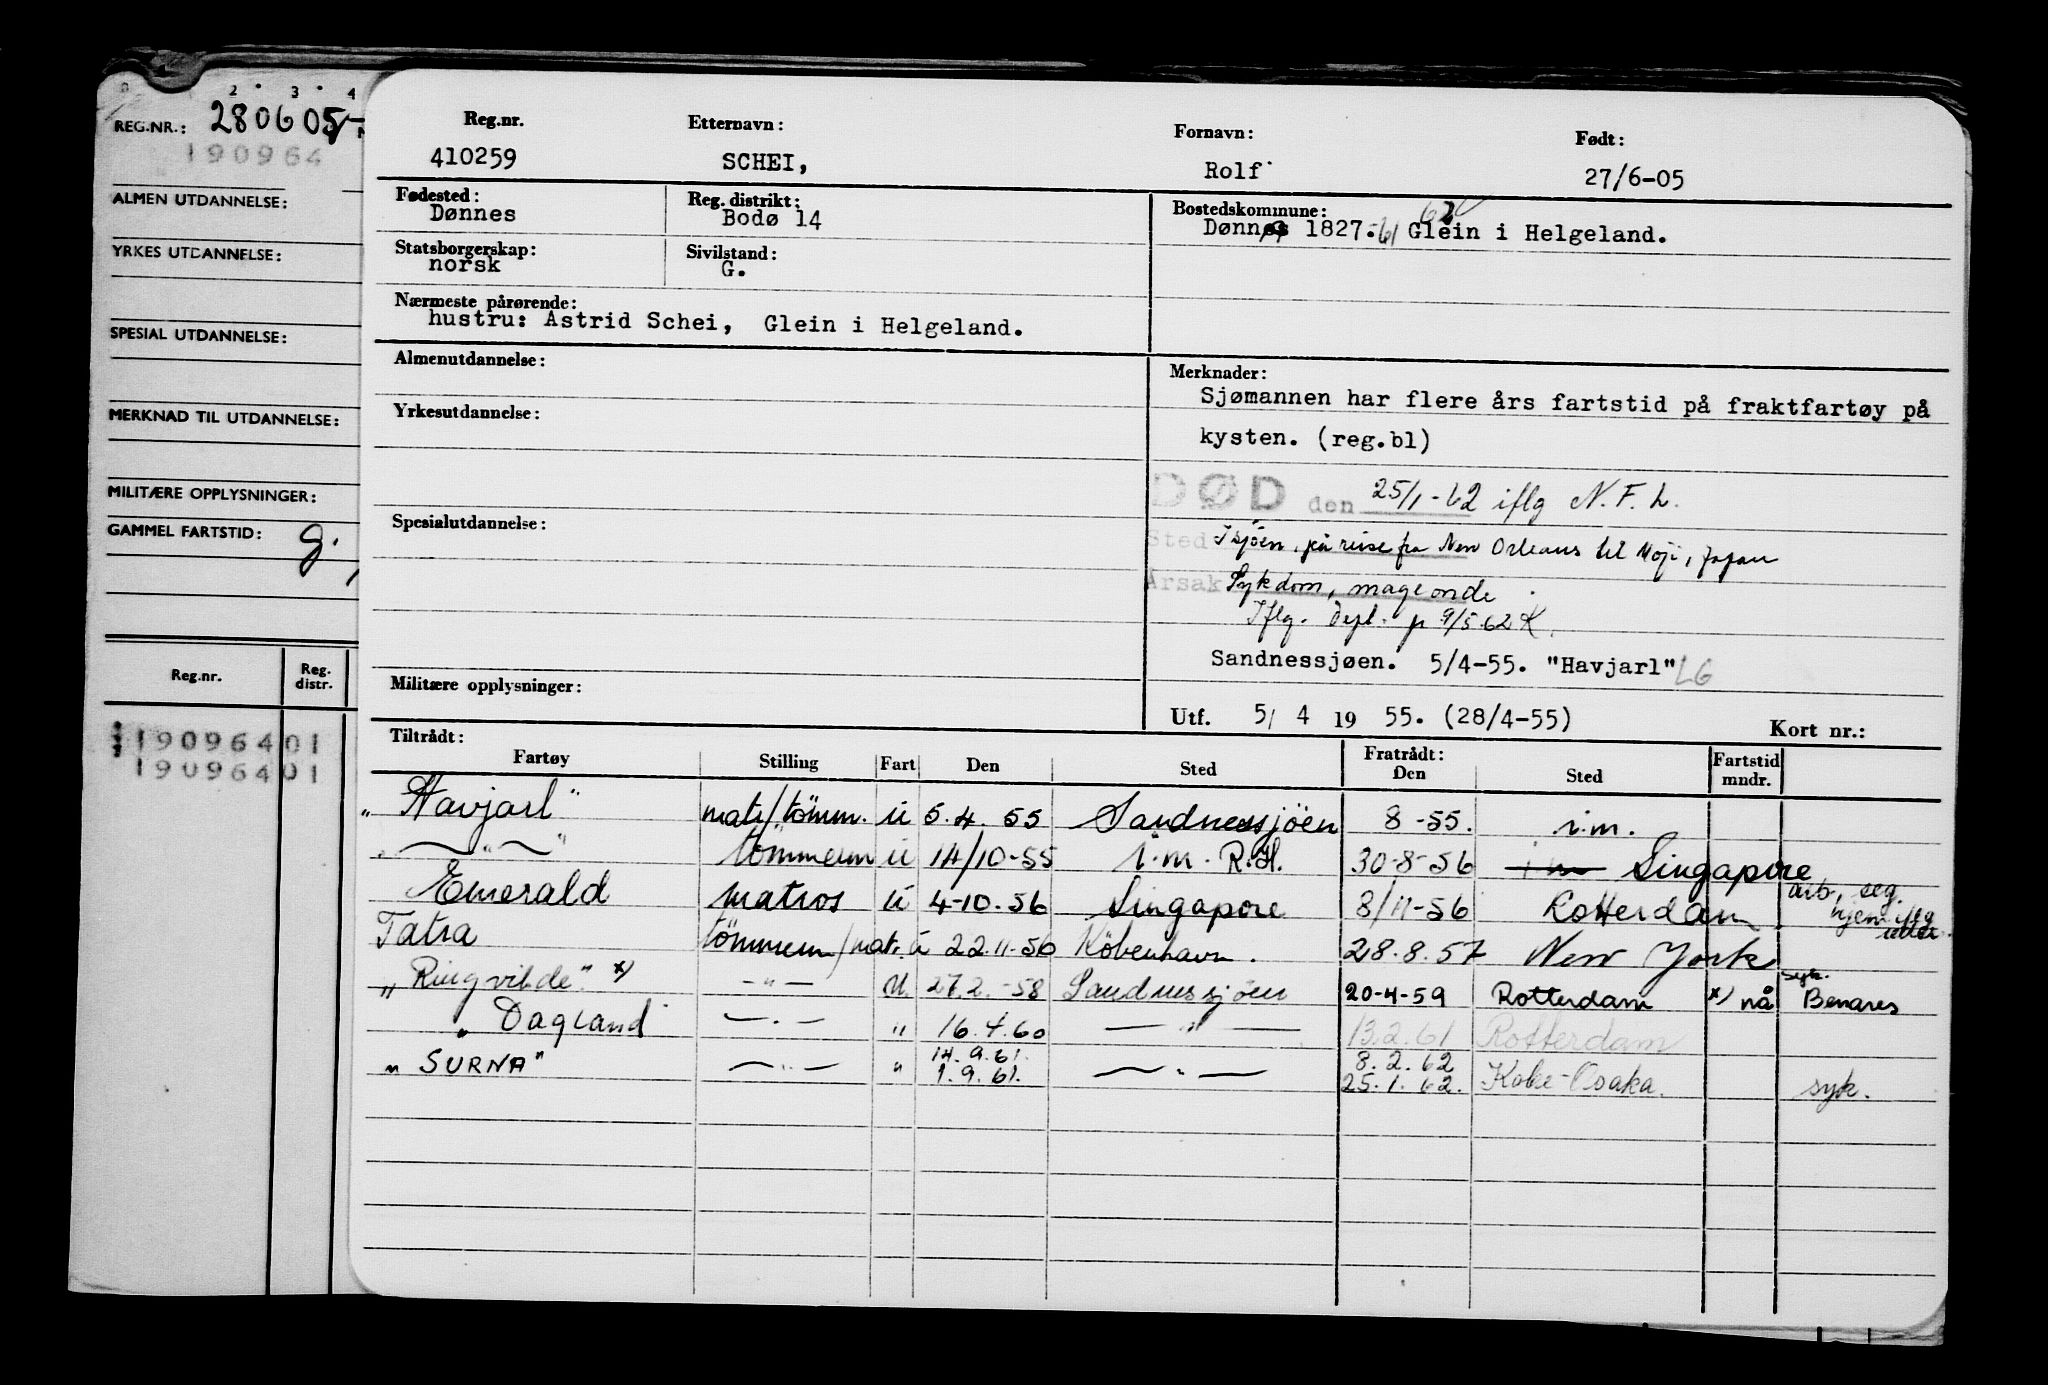 2 3 4
REG.NR.: 280605
190964
ALMEN UTDANNELSE:
YRKES UTDANNELSE:
SPESIAL UTDANNELSE:
MERKNAD TIL UTDANNELSE:
MILITÆRE OPPLYSNINGER:
GAMMEL FARTSTID: g.
Reg.nr. Reg. distr.
190964 01
190964 01
Reg.nr. Etternavn: Fornavn: Født:
410259 SCHEI, Rolf 27/6-05
Fødested: Reg. distrikt: Bostedskommune:
Dønnes Bodø 14 Dønnes 1827. 61 62 Glein i Helgeland.
Statsborgerskap: Sivilstand:
norsk G.
Nærmeste pårørende:
hustru: Astrid Schei, Glein i Helgeland.
Almenutdannelse:
Yrkesutdannelse:
Spesialutdannelse:
Militære opplysninger:
Merknader:
Sjømannen har flere års fartstid på fraktfartøy på
kysten. (reg.bl)
DØD den 25/1-62 iflg N.F.L.
Sted I sjöen, på reise fra New Orleans til Moji, Japan
Årsak Sykdom, mageonde
Iflg. Depl. p 9/5-62 K.
Sandnessjøen. 5/4-55. "Havjarl" LG
Utf. 5/ 4 19 55. (28/4-55) Kort nr.:
Tiltrådt: Fratrådt: Fartstid
Fartøy Stilling Fart Den Sted Den Sted mndr.
"Havjarl" matr/tömm. ü 5.4.55 Sandnessjöen 8-55. i.m.
— " — tömmerm ü 14/10-55 i.m. R.H. 30-8-56 i m Singapore
Emerald matros ü 4-10.56 Singapore 8/11-56 Rotterdam arb, seg. hjem iflg
Tatra tömmerm/matr. ü 22.11-56 Köbenhavn. 28.8.57 New York
"Ringvilde" x) — " — U. 27.2.-58 Sandnessjöen 20-4-59 Rotterdam x) nå syk. Benares
" Dagland — " — " 16.4.60 — " — 13.2.61 Rotterdam
14.9.61. 8.2.62
"SURNA" — " — " 1.9.61. — " — 25.1.62. Kobe-Osaka. syk.